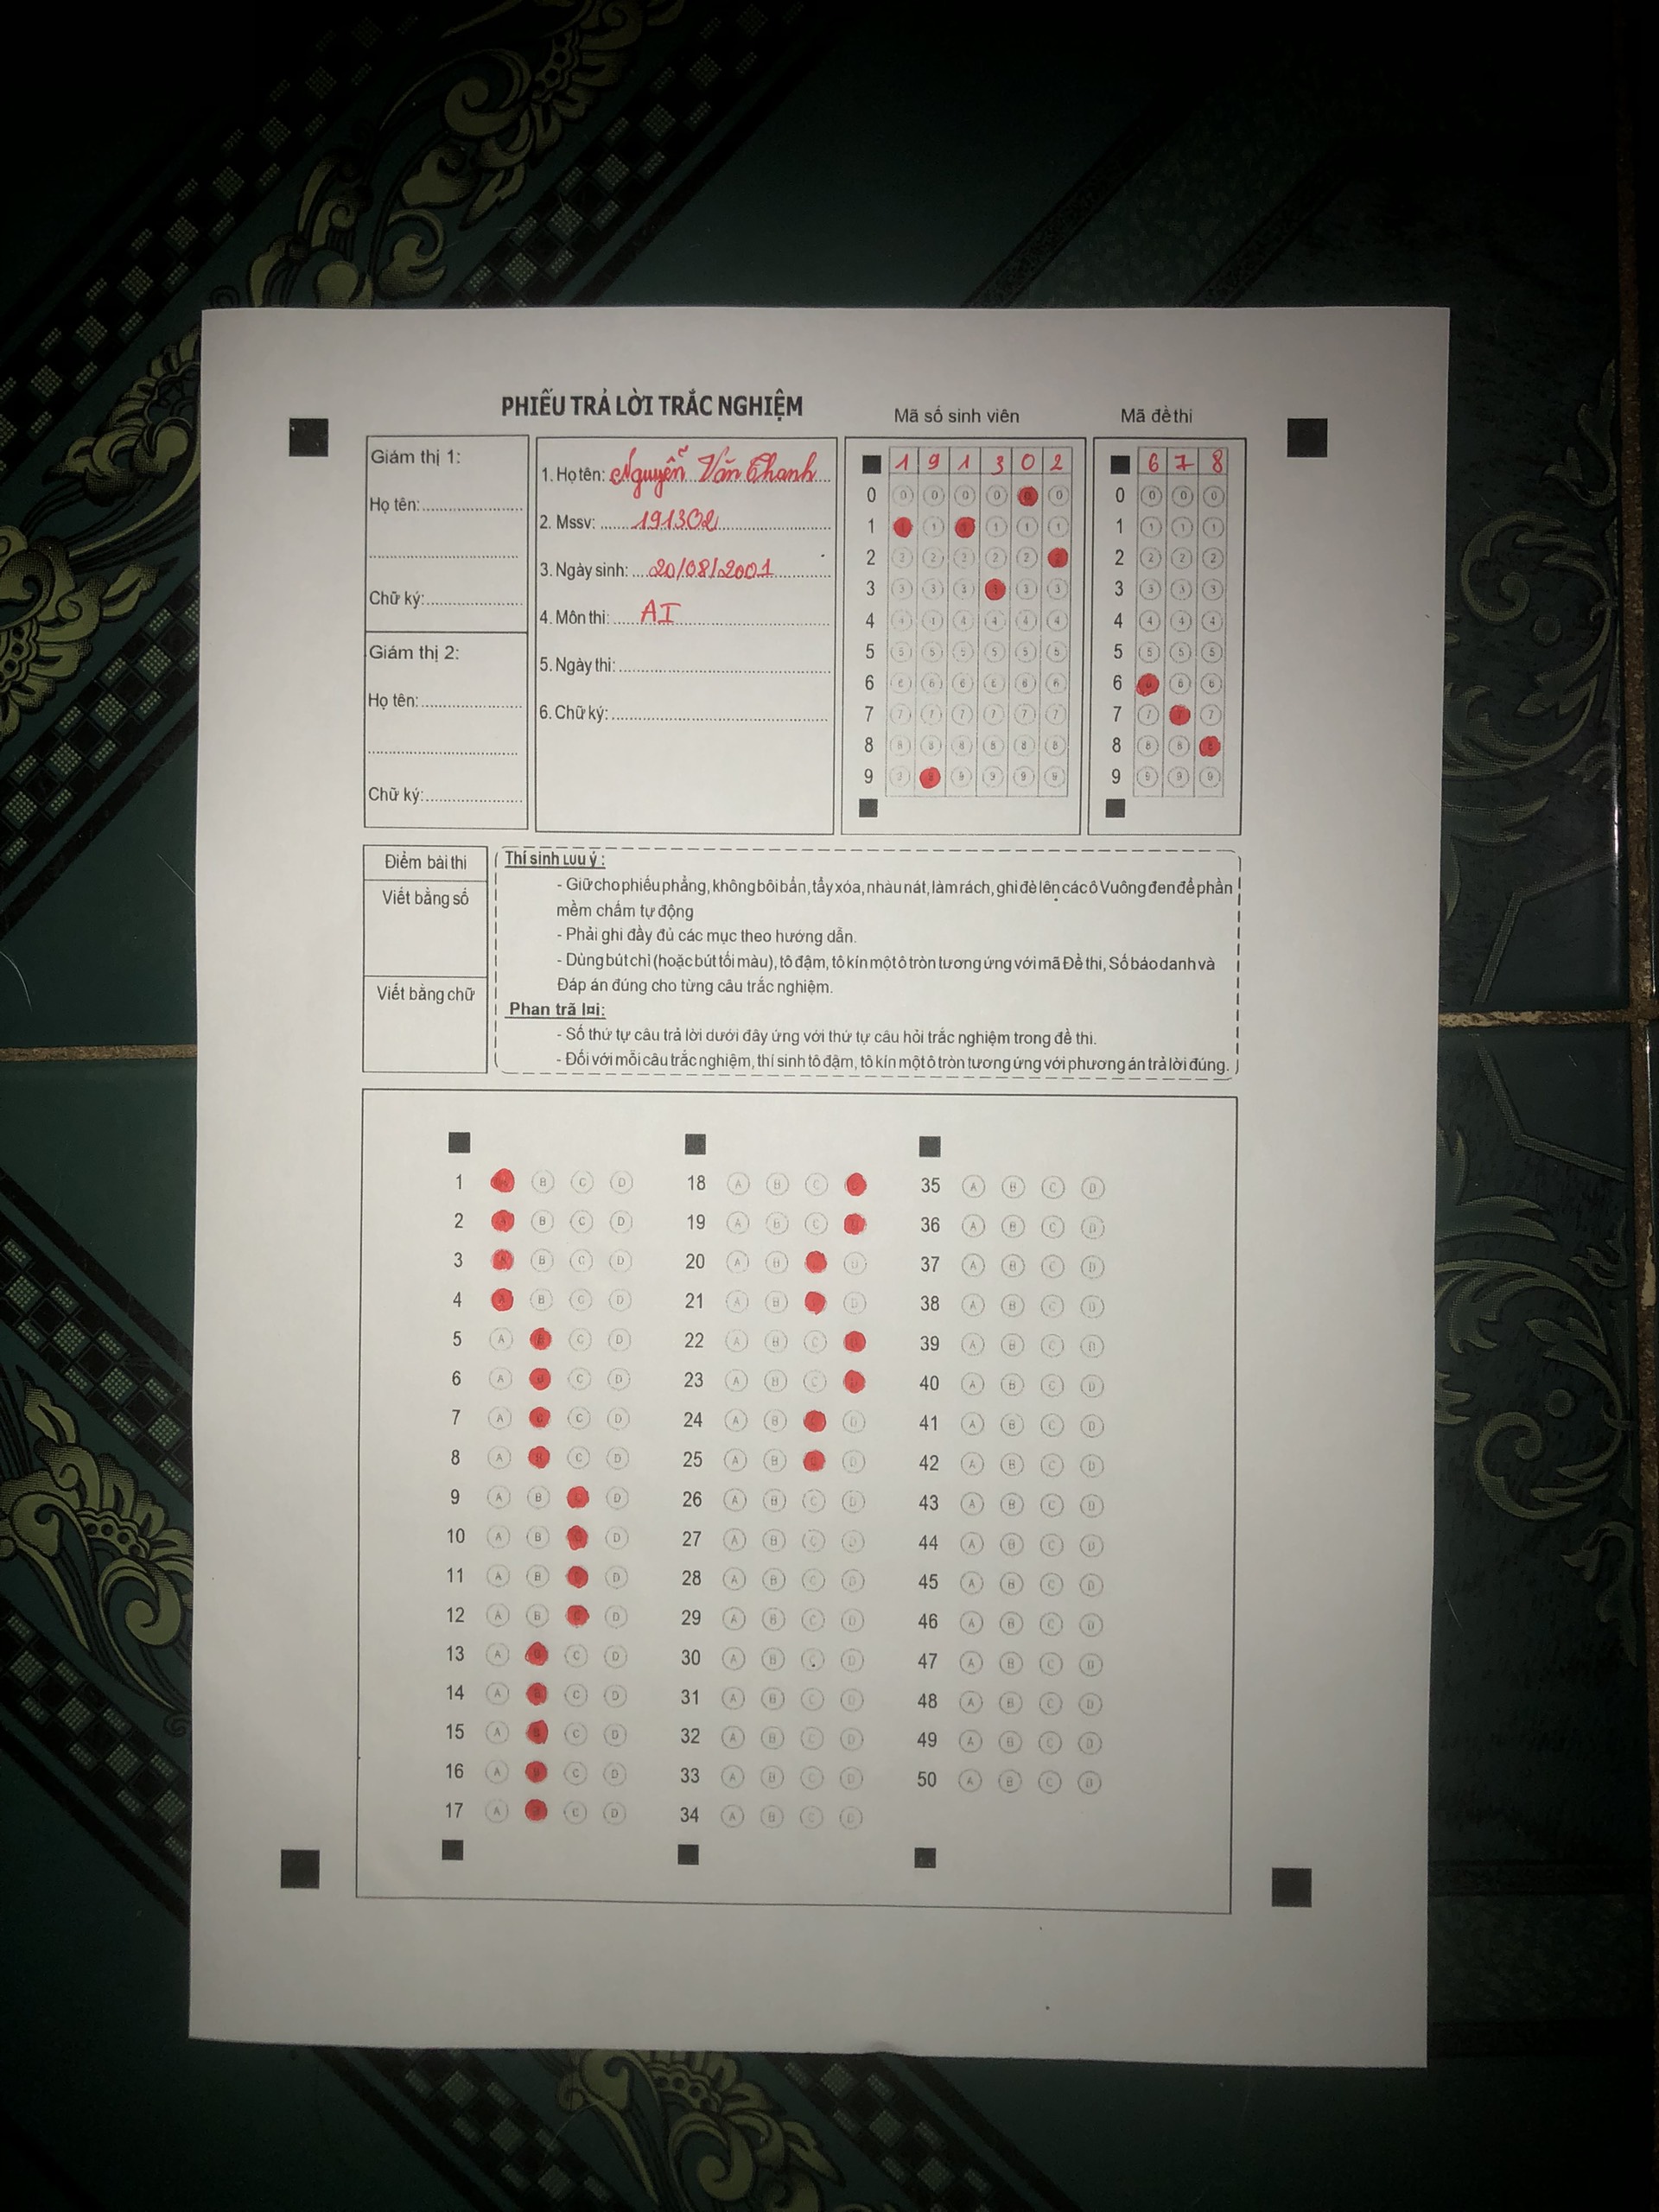 PHIẾU TRẢ LỜI TRẮC NGHIỆM
Giám thị 1:
Họ tên:
Chữ ký:
Giám thị 2:
Họ tên:
Chữ ký:
1. Họ tên: Nguyễn Văn Thanh
2. Mssv: 191302
3. Ngày sinh: 20/08/2001
4. Môn thi: AI
5. Ngày thi:
6. Chữ ký:
Mã số sinh viên
1 9 1 3 0 2
0 0 0 0 0 0 0
1 1 1 1 1 1 1
2 2 2 2 2 2 2
3 3 3 3 3 3 3
4 4 4 4 4 4 4
5 5 5 5 5 5 5
6 6 6 6 6 6 6
7 7 7 7 7 7 7
8 8 8 8 8 8 8
9 9 9 9 9 9 9
Mã đề thi
6 7 8
0 0 0 0
1 1 1 1
2 2 2 2
3 3 3 3
4 4 4 4
5 5 5 5
6 6 6 6
7 7 7 7
8 8 8 8
9 9 9 9
Điểm bài thi
Viết bằng số
Viết bằng chữ
Thí sinh Lưu ý :
- Giữ cho phiếu phẳng, không bôi bẩn, tẩy xóa, nhàu nát, làm rách, ghi đè lên các ô Vuông đen để phần
mềm chấm tự động
- Phải ghi đầy đủ các mục theo hướng dẫn.
- Dùng bút chì (hoặc bút tối màu), tô đậm, tô kín một ô tròn tương ứng với mã Đề thi, Số báo danh và
Đáp án đúng cho từng câu trắc nghiệm.
Phan trã lai:
- Số thứ tự câu trả lời dưới đây ứng với thứ tự câu hỏi trắc nghiệm trong đề thi.
- Đối với mỗi câu trắc nghiệm, thí sinh tô đậm, tô kín một ô tròn tương ứng với phương án trả lời đúng.
1 A B C D
2 A B C D
3 A B C D
4 A B C D
5 A B C D
6 A B C D
7 A B C D
8 A B C D
9 A B C D
10 A B C D
11 A B C D
12 A B C D
13 A B C D
14 A B C D
15 A B C D
16 A B C D
17 A B C D
18 A B C D
19 A B C D
20 A B C D
21 A B C D
22 A B C D
23 A B C D
24 A B C D
25 A B C D
26 A B C D
27 A B C D
28 A B C D
29 A B C D
30 A B C D
31 A B C D
32 A B C D
33 A B C D
34 A B C D
35 A B C D
36 A B C D
37 A B C D
38 A B C D
39 A B C D
40 A B C D
41 A B C D
42 A B C D
43 A B C D
44 A B C D
45 A B C D
46 A B C D
47 A B C D
48 A B C D
49 A B C D
50 A B C D